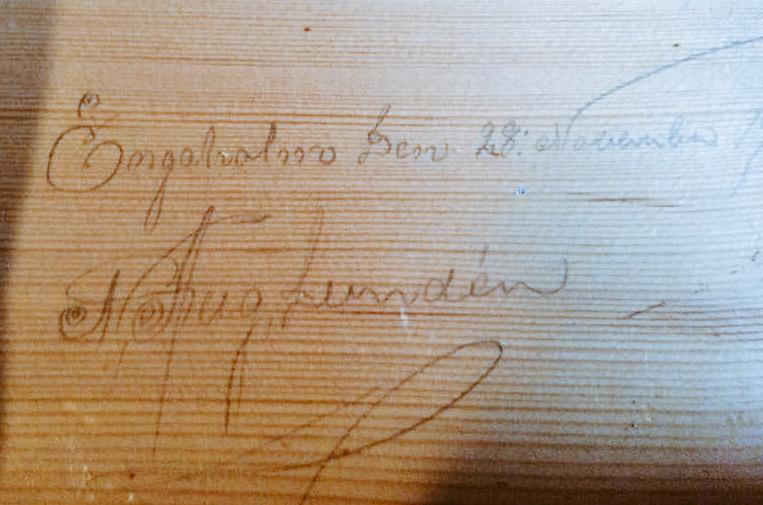 Engelholm den 28: November
Aug. Lundén